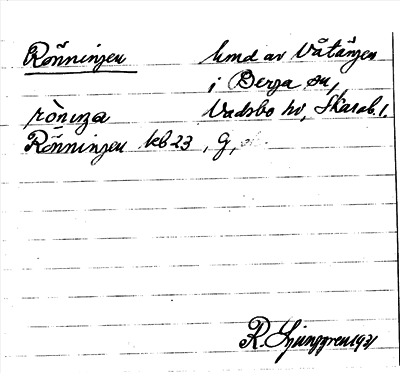 Rönningen hmd av Våtängen
i Berga sn,
rònıŋa Vadsbo hd, Skarab. l.
Rönningen kb 23, G,
R. Ljunggren 1931